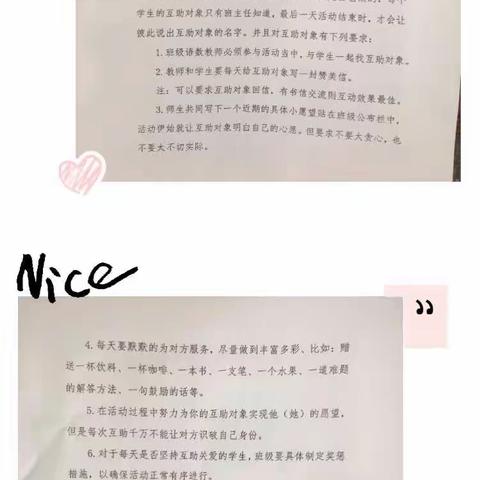 学生的互助对象只有班主任知道，最后一天活动结束时，才会让
彼此说出互助对象的名字。并且对互助对象有下列要求：
1.班级语数教师必须参与活动当中，与学生一起找互助对象。
2.教师和学生要每天给互助对象写一封赞美信。
注：可以要求互助对象回信，有书信交流则互动效果最佳。
3.师生共同写下一个近期的具体小愿望贴在班级公布栏中，
活动伊始就让互助对象明白自己的心愿。但要求不要太贪心，也
不要太不切实际。
Nice
”
4.每天要默默的为对方服务，尽量做到丰富多彩、比如：赠
送一杯饮料、一杯咖啡、一本书、一支笔、一个水果、一道难题
的解答方法、一句鼓励的话等。
5.在活动过程中努力为你的互助对象实现他（她）的愿望，
但是每次互助千万不能让对方识破自己身份。
6.对于每天是否坚持互助关爱的学生，班级要具体制定奖惩
措施，以确保活动正常有序进行。